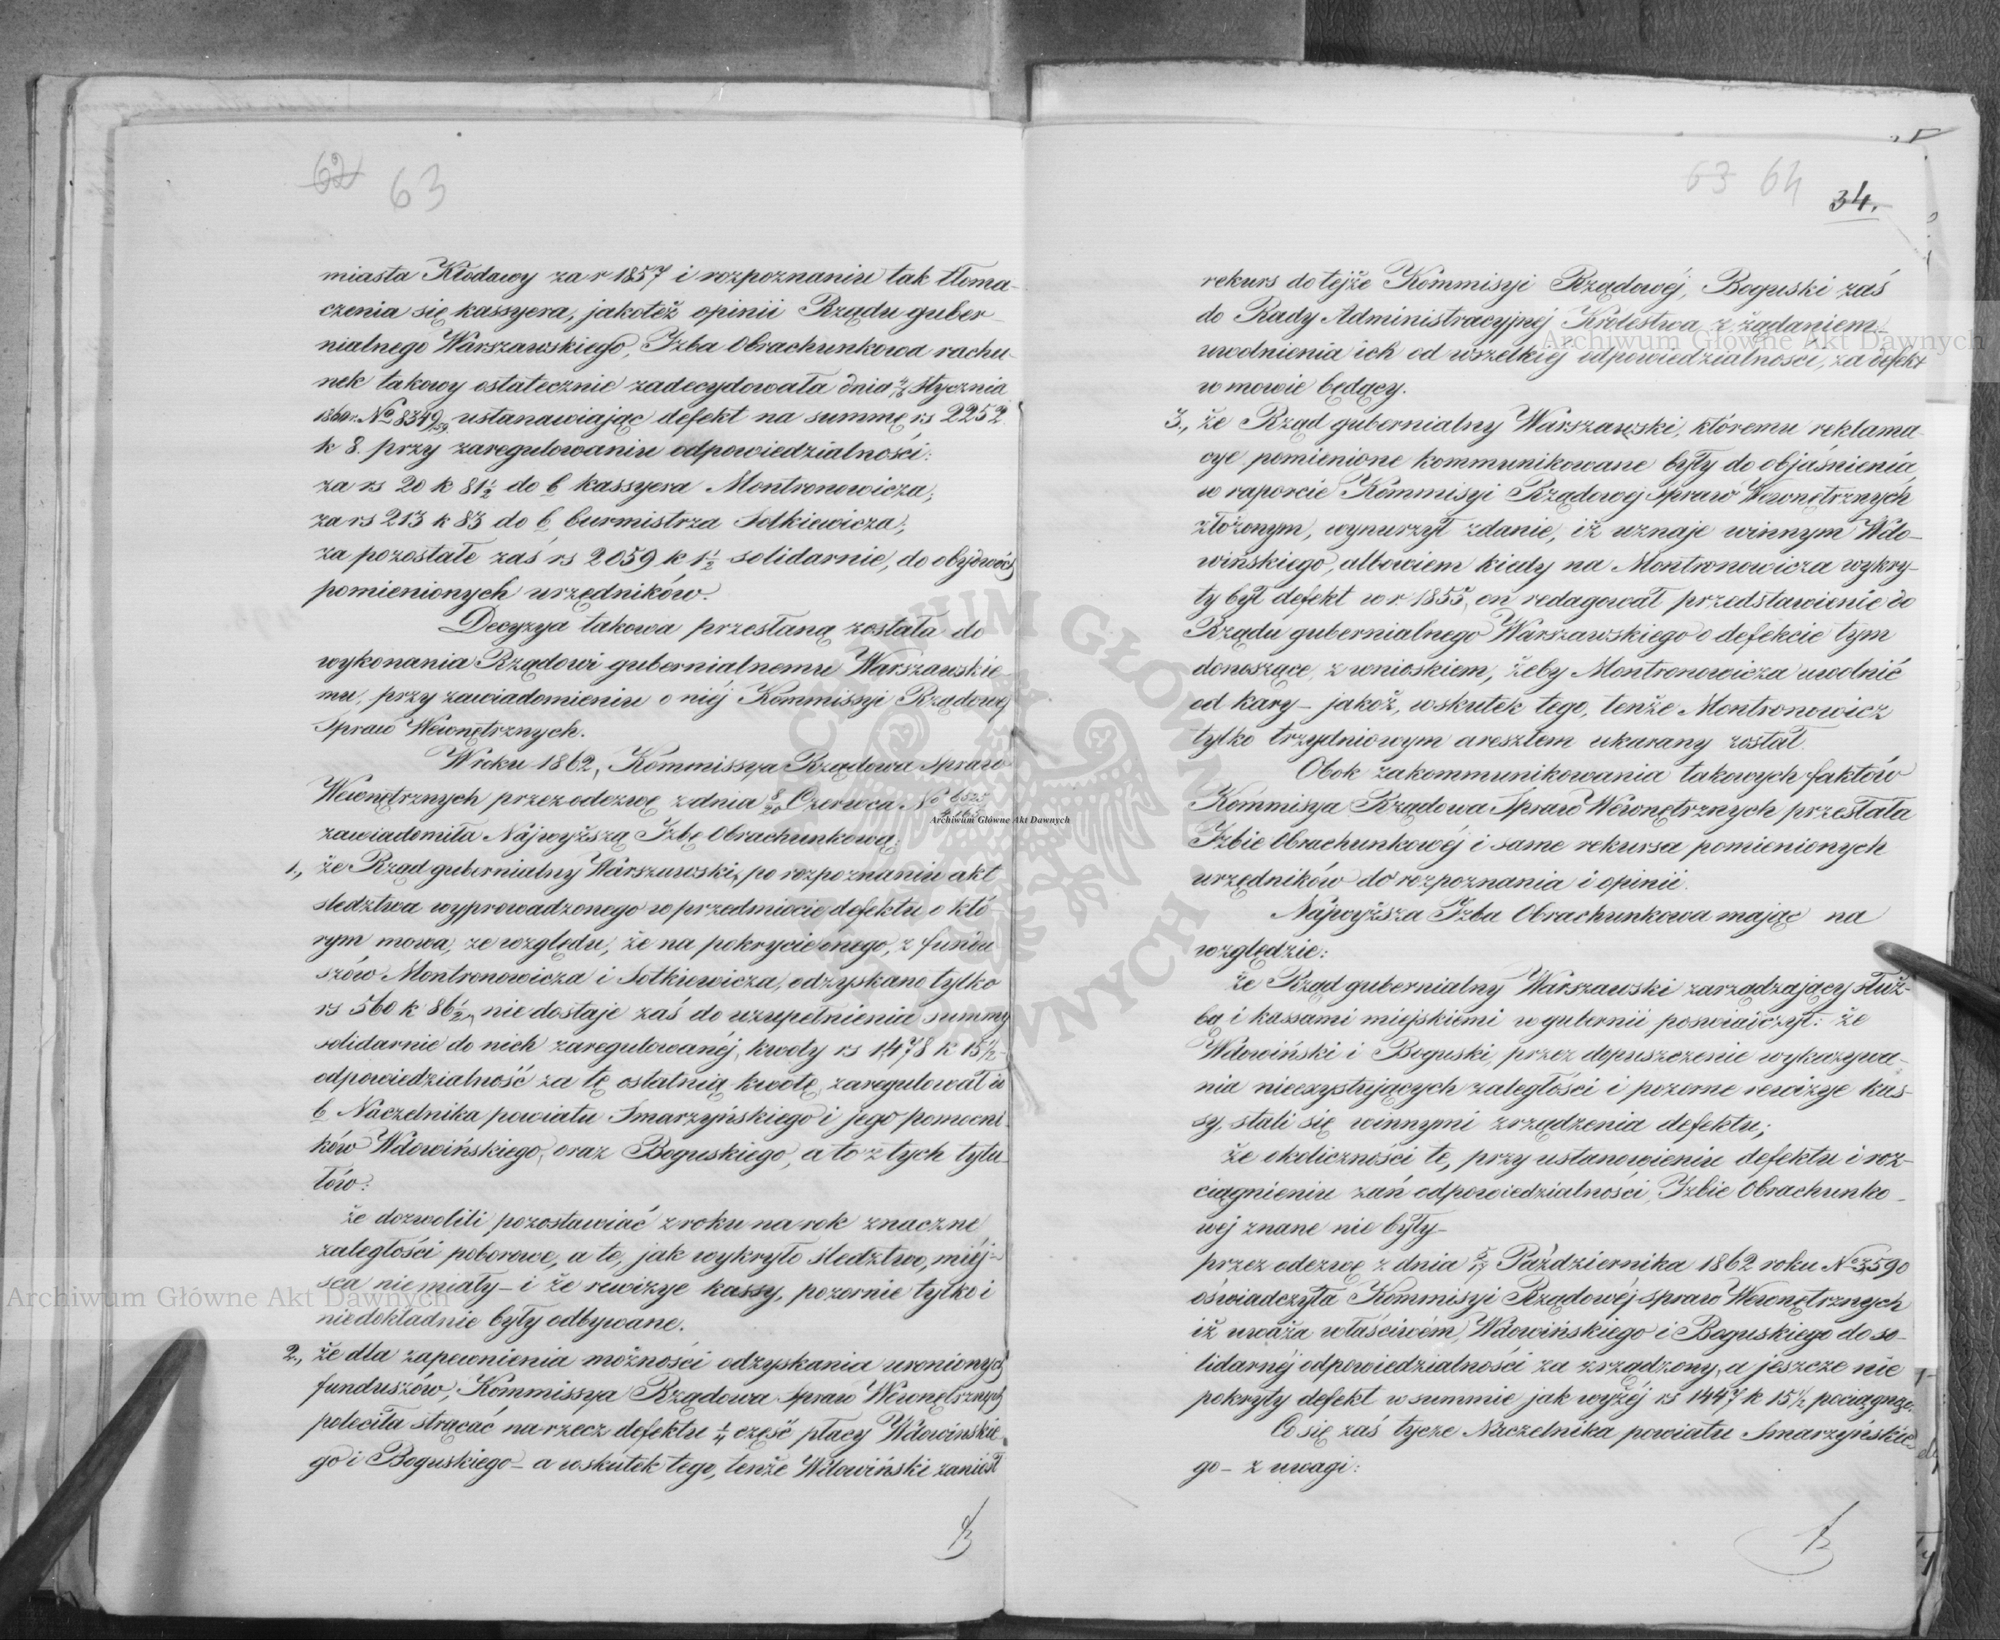 62 63
miasta Kłodawy za r 1857 i rozpoznaniu tak tłoma-
czenia się kassyera, jakotéż opinii Rządu guber-
nialnego Warszawskiego, Izba Obrachunkowa rachu-
nek takowy ostatecznie zadecydowała dnia 4/16 stycznia
1860 r. No 8349/59 ustanawiając defekt na summę rs 2252
k 8. przy zaregulowaniu odpowiedzialności:
za rs 20 k 81½ do b kassyera Montronowicza,
za rs 213 k 83 do b burmistrza Sotkiewicza,
za pozostałe zaś rs 2059 k 1½ solidarnie, do obydwóch
pomienionych urzędników.
Decyzya takowa przesłaną została do
wykonania Rządowi gubernialnemu Warszawskie-
mu, przy zawiadomieniu o niéj Kommissyi Rządowéj
Spraw Wewnętrznych.
W roku 1862, Kommissya Rządowa Spraw
Wewnętrznych przez odezwę z dnia 8/20 Czerwca No 6525
zawiadomiła Najwyższą Izbę Obrachunkową:
1., że Rząd gubernialny Warszawski, po rozpoznaniu akt
śledztwa wyprowadzonego w przedmiocie defektu o któ-
rym mowa, ze względu, że na pokrycie onego, z fundu-
szów Montronowicza i Sotkiewicza, odzyskano tylko
rs 560 k 86½, nie dostaje zaś do uzupełnienia summy
solidarnie do nich zaregulowanéj, kwoty rs 1478 k 15½
odpowiedzialność za tę ostatnią kwotę, zaregulował do
b Naczelnika powiatu Smarzyńskiego i jego pomocni-
ków Wdowińskiego, oraz Boguskiego, a to z tych tytu-
łów:
że dozwolili pozostawiać z roku na rok znaczne
zaległości poborowe, a te, jak wykryło śledztwo, miéj-
sca nie miały – i że rewizye kassy, pozornie tylko i
niedokładnie były odbywane.
2., że dla zapewnienia możności odzyskania uronionych
funduszów, Kommissya Rządowa Spraw Wewnętrznych
poleciła strącać na rzecz defektu ¼ część płacy Wdowińskie-
go i Boguskiego – a wskutek tego, tenże Wdowiński zaniósł
63 64
34.
rekurs do tejże Kommisyi Rządowéj, Boguski zaś
do Rady Administracyjnéj Królestwa z żądaniem
uwolnienia ich od wszelkiéj odpowiedzialności, za defekt
w mowie będący.
3., że Rząd gubernialny Warszawski, któremu reklama-
cye pomienione kommunikowane były do objaśnienia
w raporcie Kommisyi Rządowéj Spraw Wewnętrznych
złożonym, wynurzył zdanie, iż uznaje winnym Wdo-
wińskiego, albowiem kiedy na Montronowicza wykry-
ty był defekt w r. 1855, on redagował przedstawienie do
Rządu gubernialnego Warszawskiego o defekcie tym
donoszące, z wnioskiem, żeby Montronowicza uwolnić
od kary – jakoż, wskutek tego, tenże Montronowicz
tylko trzydniowym aresztem ukarany został.
Obok zakommunikowania takowych faktów
Kommisya Rządowa Spraw Wewnętrznych przesłała
Izbie Obrachunkowéj i same rekursa pomienionych
urzędników do rozpoznania i opinii.
Najwyższa Izba Obrachunkowa mając na
względzie:
że Rząd gubernialny Warszawski zarządzający służ-
bą i kassami miejskiemi w gubernii poświadczył: że
Wdowiński i Boguski, przez dopuszczenie wykazywa-
nia nieczystujących zaległości i pozorne rewizye kas-
sy, stali się winnymi zrządzenia defektu;
że okoliczności te, przy ustanowieniu defektu i roz-
ciągnieniu zań odpowiedzialności, Izbie Obrachunko-
wéj znane nie były –
przez odezwę z dnia 5/17 Października 1862 roku No 3590
oświadczyła Kommisyi Rządowéj Spraw Wewnętrznych
iż uważa właściwém, Wdowińskiego i Boguskiego do so-
lidarnéj odpowiedzialności za zrządzony, a jeszcze nie
pokryty defekt w summie jak wyżéj rs 1447 k 15½ pociągnąć.
Co się zaś tycze Naczelnika powiatu Smarzyńskie-
go – z uwagi:
Archiwum Główne Akt Dawnych
Archiwum Główne Akt Dawnych
Archiwum Główne Akt Dawnych